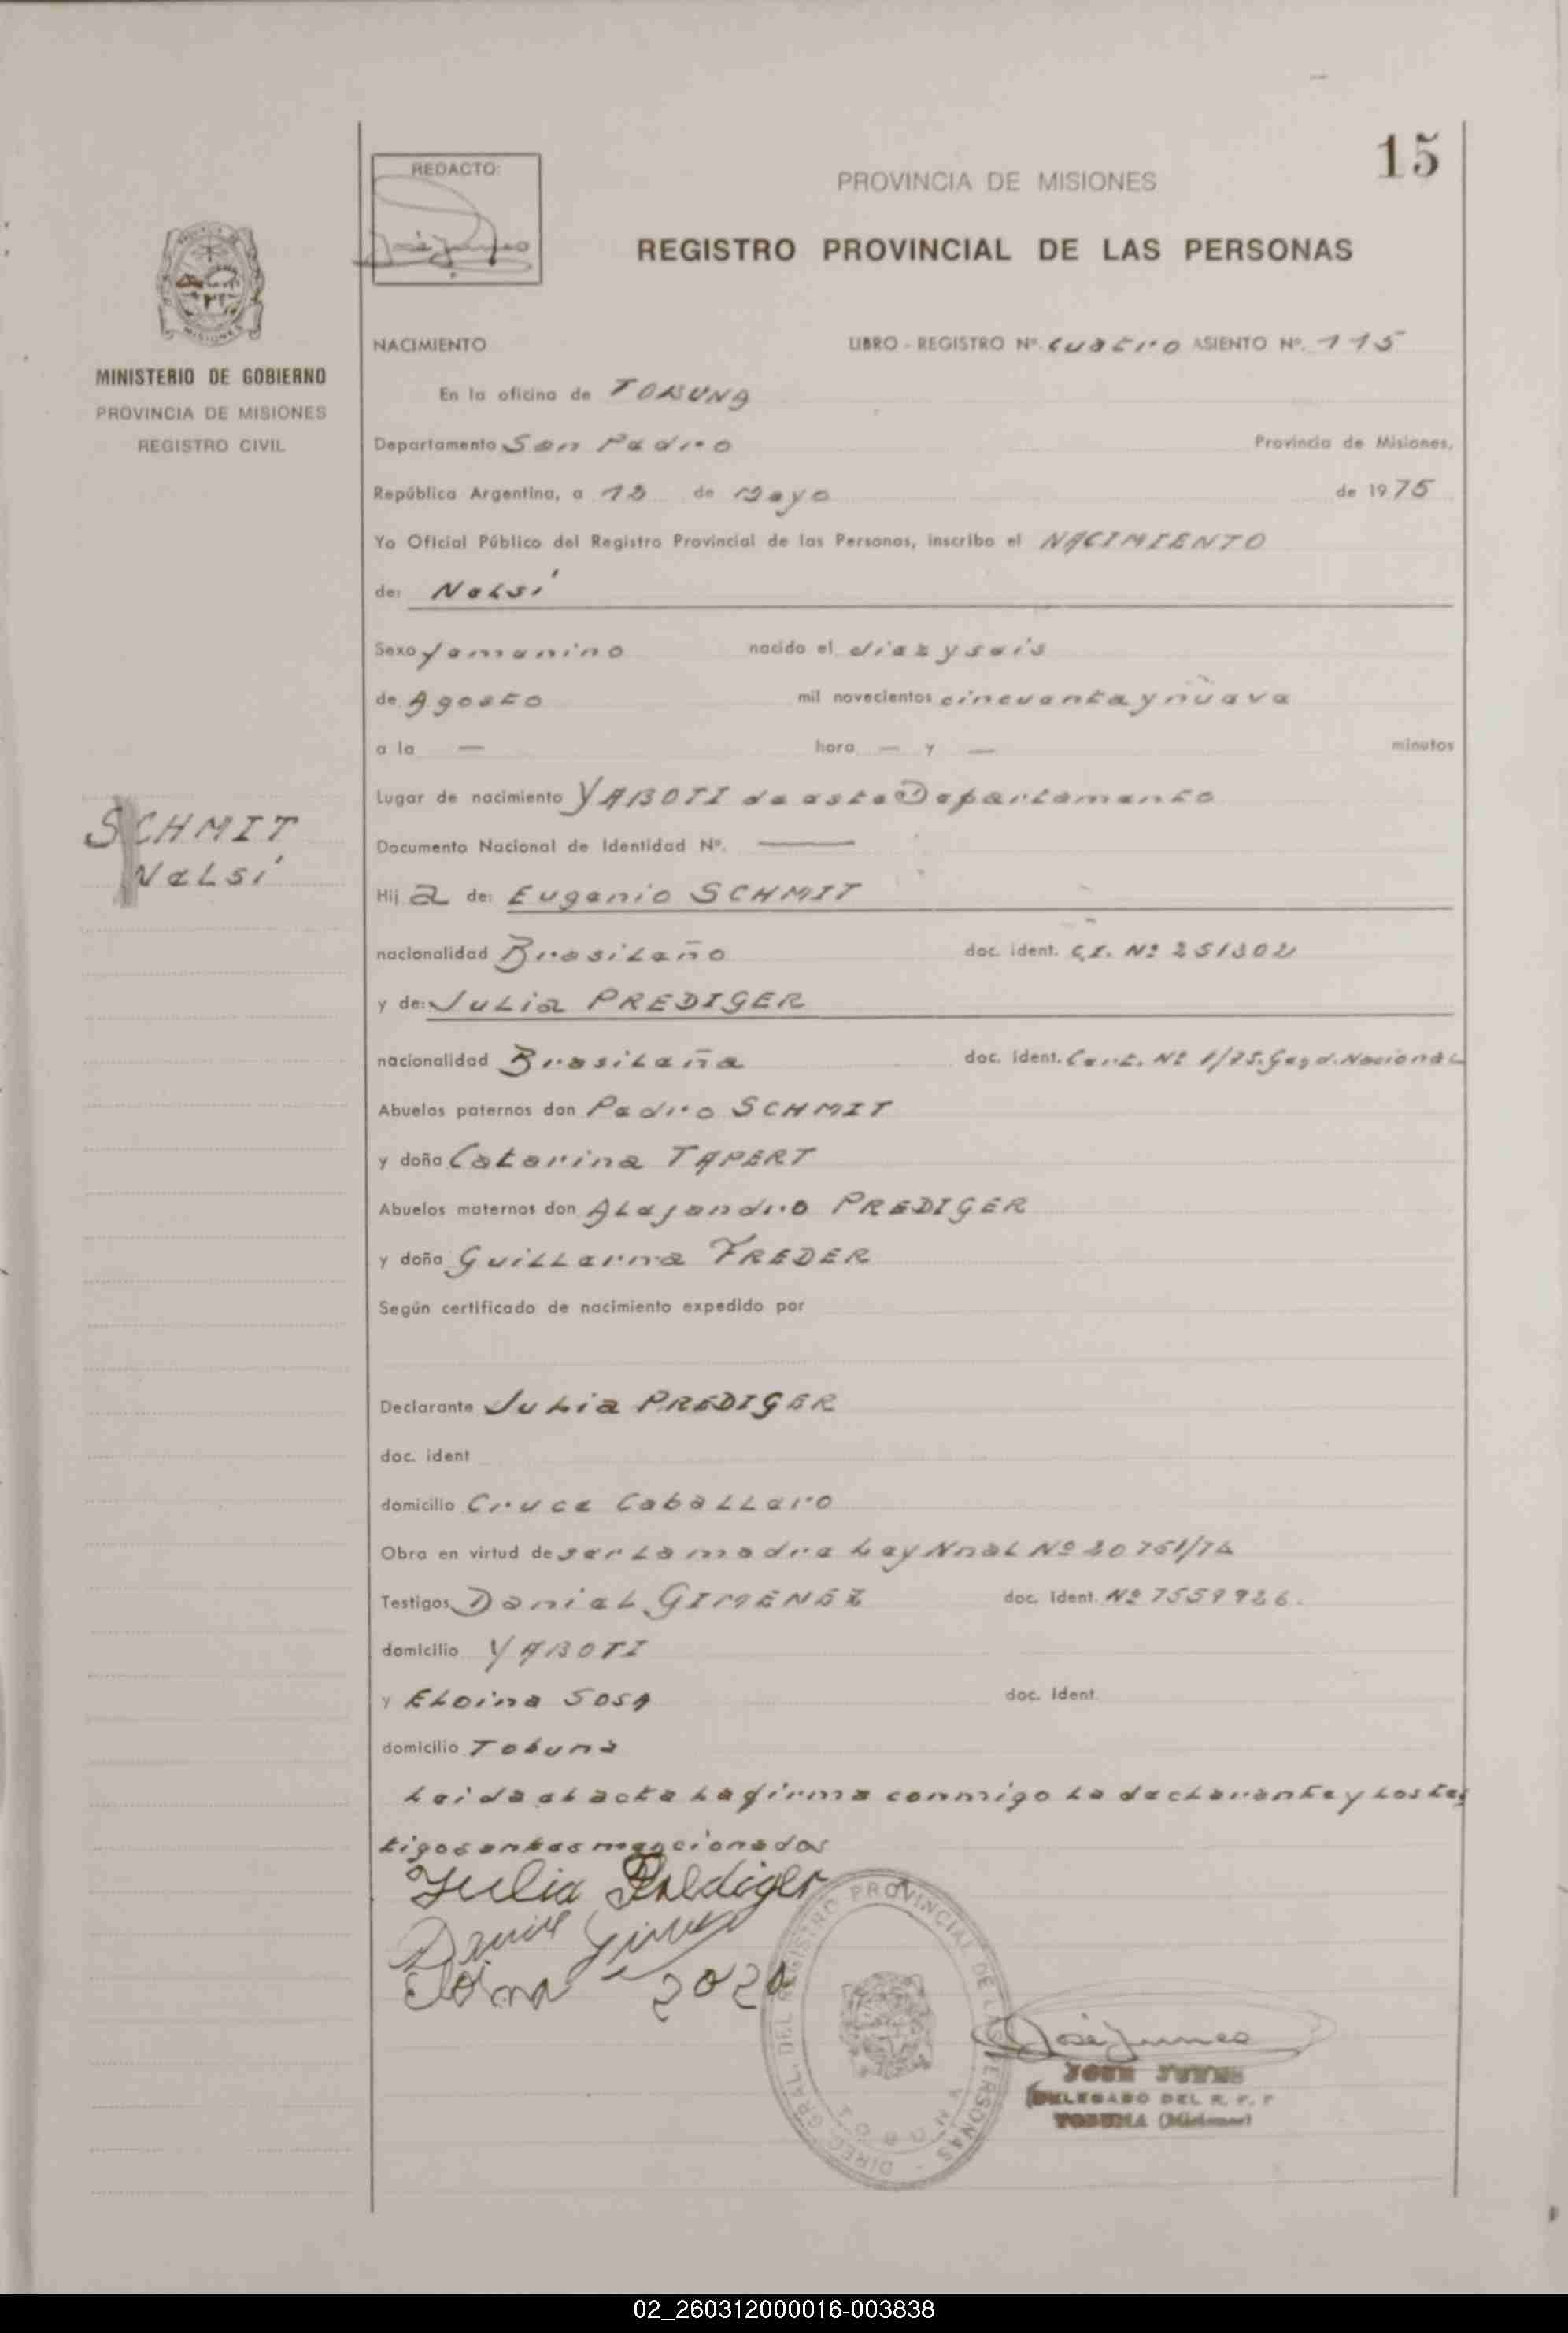 15
REDACTO:
PROVINCIA DE MISIONES
REGISTRO PROVINCIAL DE LAS PERSONAS
MISIONES
MINISTERIO DE GOBIERNO
PROVINCIA DE MISIONES
REGISTRO CIVIL
NACIMIENTO LIBRO - REGISTRO Nº. cuatro ASIENTO Nº. 115
En la oficina de TOBUNA
Departamento San Pedro Provincia de Misiones,
República Argentina, a de Mayo de 1975
Yo Oficial Público del Registro Provincial de las Personas, inscribo el NACIMIENTO
de: Nelsí
Sexo femenino nacido el diez y seis
de Agosto mil novecientos cincuenta y nueve
a la — hora — y — minutos
Lugar de nacimiento YABOTI de este Departamento
SCHMIT
Nelsí
Documento Nacional de Identidad Nº. ———
Hij a de: Eugenio SCHMIT
nacionalidad Brasileño doc. ident. C.I. Nº 251302
y de: Julia PREDIGER
nacionalidad Brasileña doc. ident. Cert. Nº 1/75. Gend. Nacional
Abuelos paternos don Pedro SCHMIT
y doña Catarina TAPERT
Abuelos maternos don Alejandro PREDIGER
y doña Guillerma FREDER
Según certificado de nacimiento expedido por
Declarante Julia PREDIGER
doc. ident
domicilio Cruce Caballero
Obra en virtud de ser la madre Ley Nnal Nº 20751/74
Testigos Daniel GIMENEZ doc. ident. Nº 7559926.
domicilio YABOTI
y Eloina SOSA doc. ident.
domicilio Tobuna
Leida el acta la firma conmigo la declarante y los tes
tigos antes mencionados
Julia Prediger
Daniel Gimenez
Eloina
DIREC. GRAL. DEL REGISTRO PROVINCIAL DE LAS PERSONAS
TOBUNA
José Junes
DELEGADO DEL R. P. P
TOBUNA (Misiones)
02_260312000016-003838